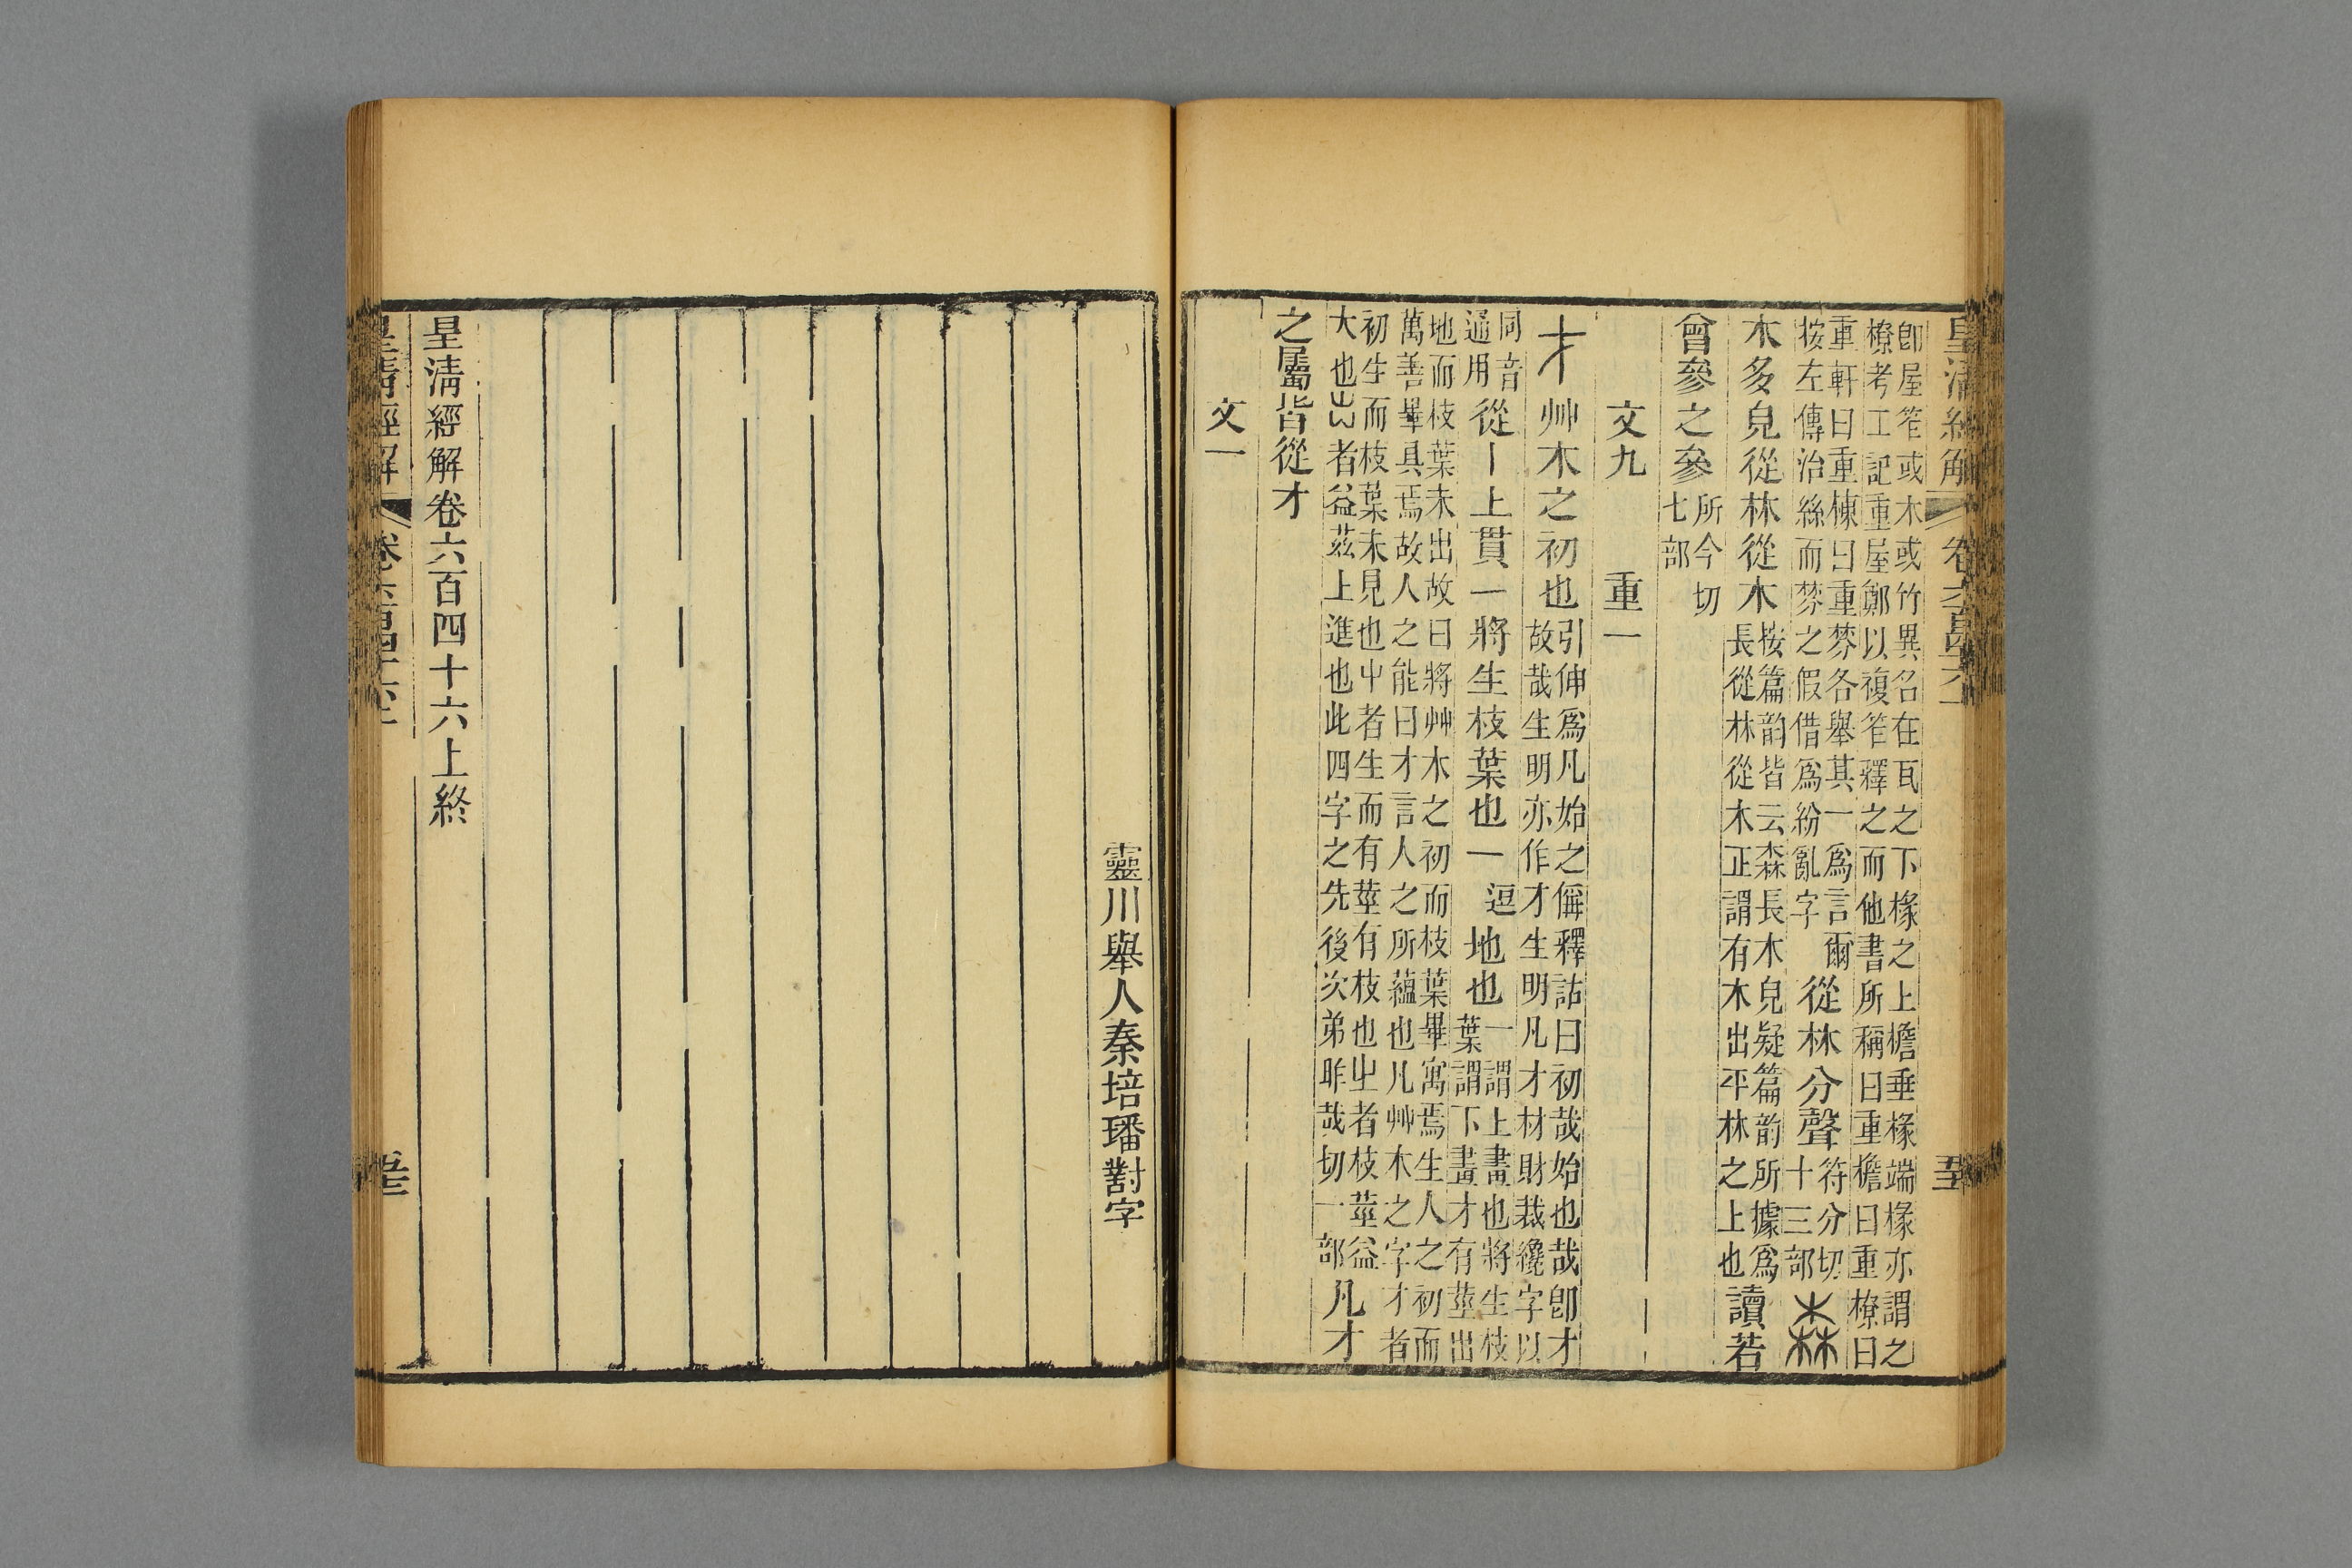 皇清經解 卷六百四十六上
卽屋笮或木或竹異名在瓦之下椽之上檐垂椽端椽亦謂之
橑考工記重屋鄭以複笮釋之而他書所稱曰重檐曰重橑曰
重軒曰重棟曰重棼各舉其一爲言爾
按左傳治絲而棼之假借爲紛亂字
從林分聲
符分切
十三部
森
木多皃從林從木
按篇韵皆云森長木皃疑篇韵所據爲
長從林從木正謂有木出平林之上也
讀若
曾參之參
所今切
七部
文九 重一
才 艸木之初也
引伸爲凡始之偁釋詁曰初哉始也哉卽才
故哉生明亦作才生明凡才材財裁纔字以
同音
通用
從丨上貫一將生枝葉也一
逗
地也
一謂上畫也將生枝
葉謂下畫才有莖出
地而枝葉未出故曰將艸木之初而枝葉畢寓焉生人之初而
萬善畢具焉故人之能曰才言人之所蘊也凡艸木之字才者
初生而枝葉未見也屮者生而有莖有枝也㞢者枝莖益
大也出者益茲上進也此四字之先後次弟昨哉切一部
凡才
之屬皆從才
文一
靈川舉人秦培璠對字
皇清經解卷六百四十六上終
皇清經解 卷六百四十六上